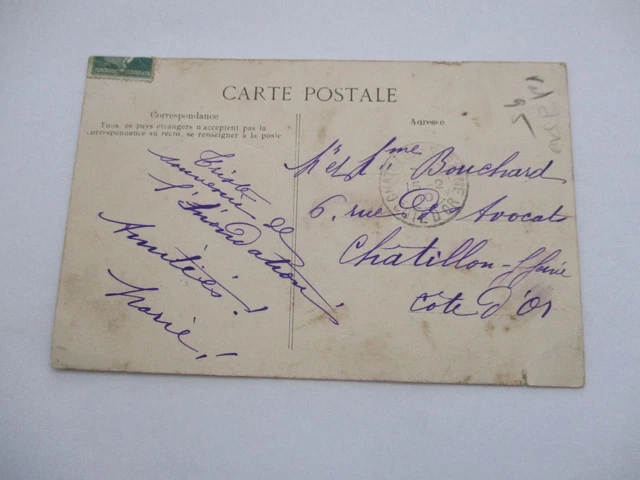 CARTE POSTALE
Correspondance
Tous les pays étrangers n'acceptent pas la
correspondance au recto, se renseigner à la poste
Adresse
Triste
souvenir de
l'Inondation!
Amitiés!
Marie!
Mr et Mme Bouchard
6, rue des Avocats
Châtillon-s/Seine
Côte d'Or